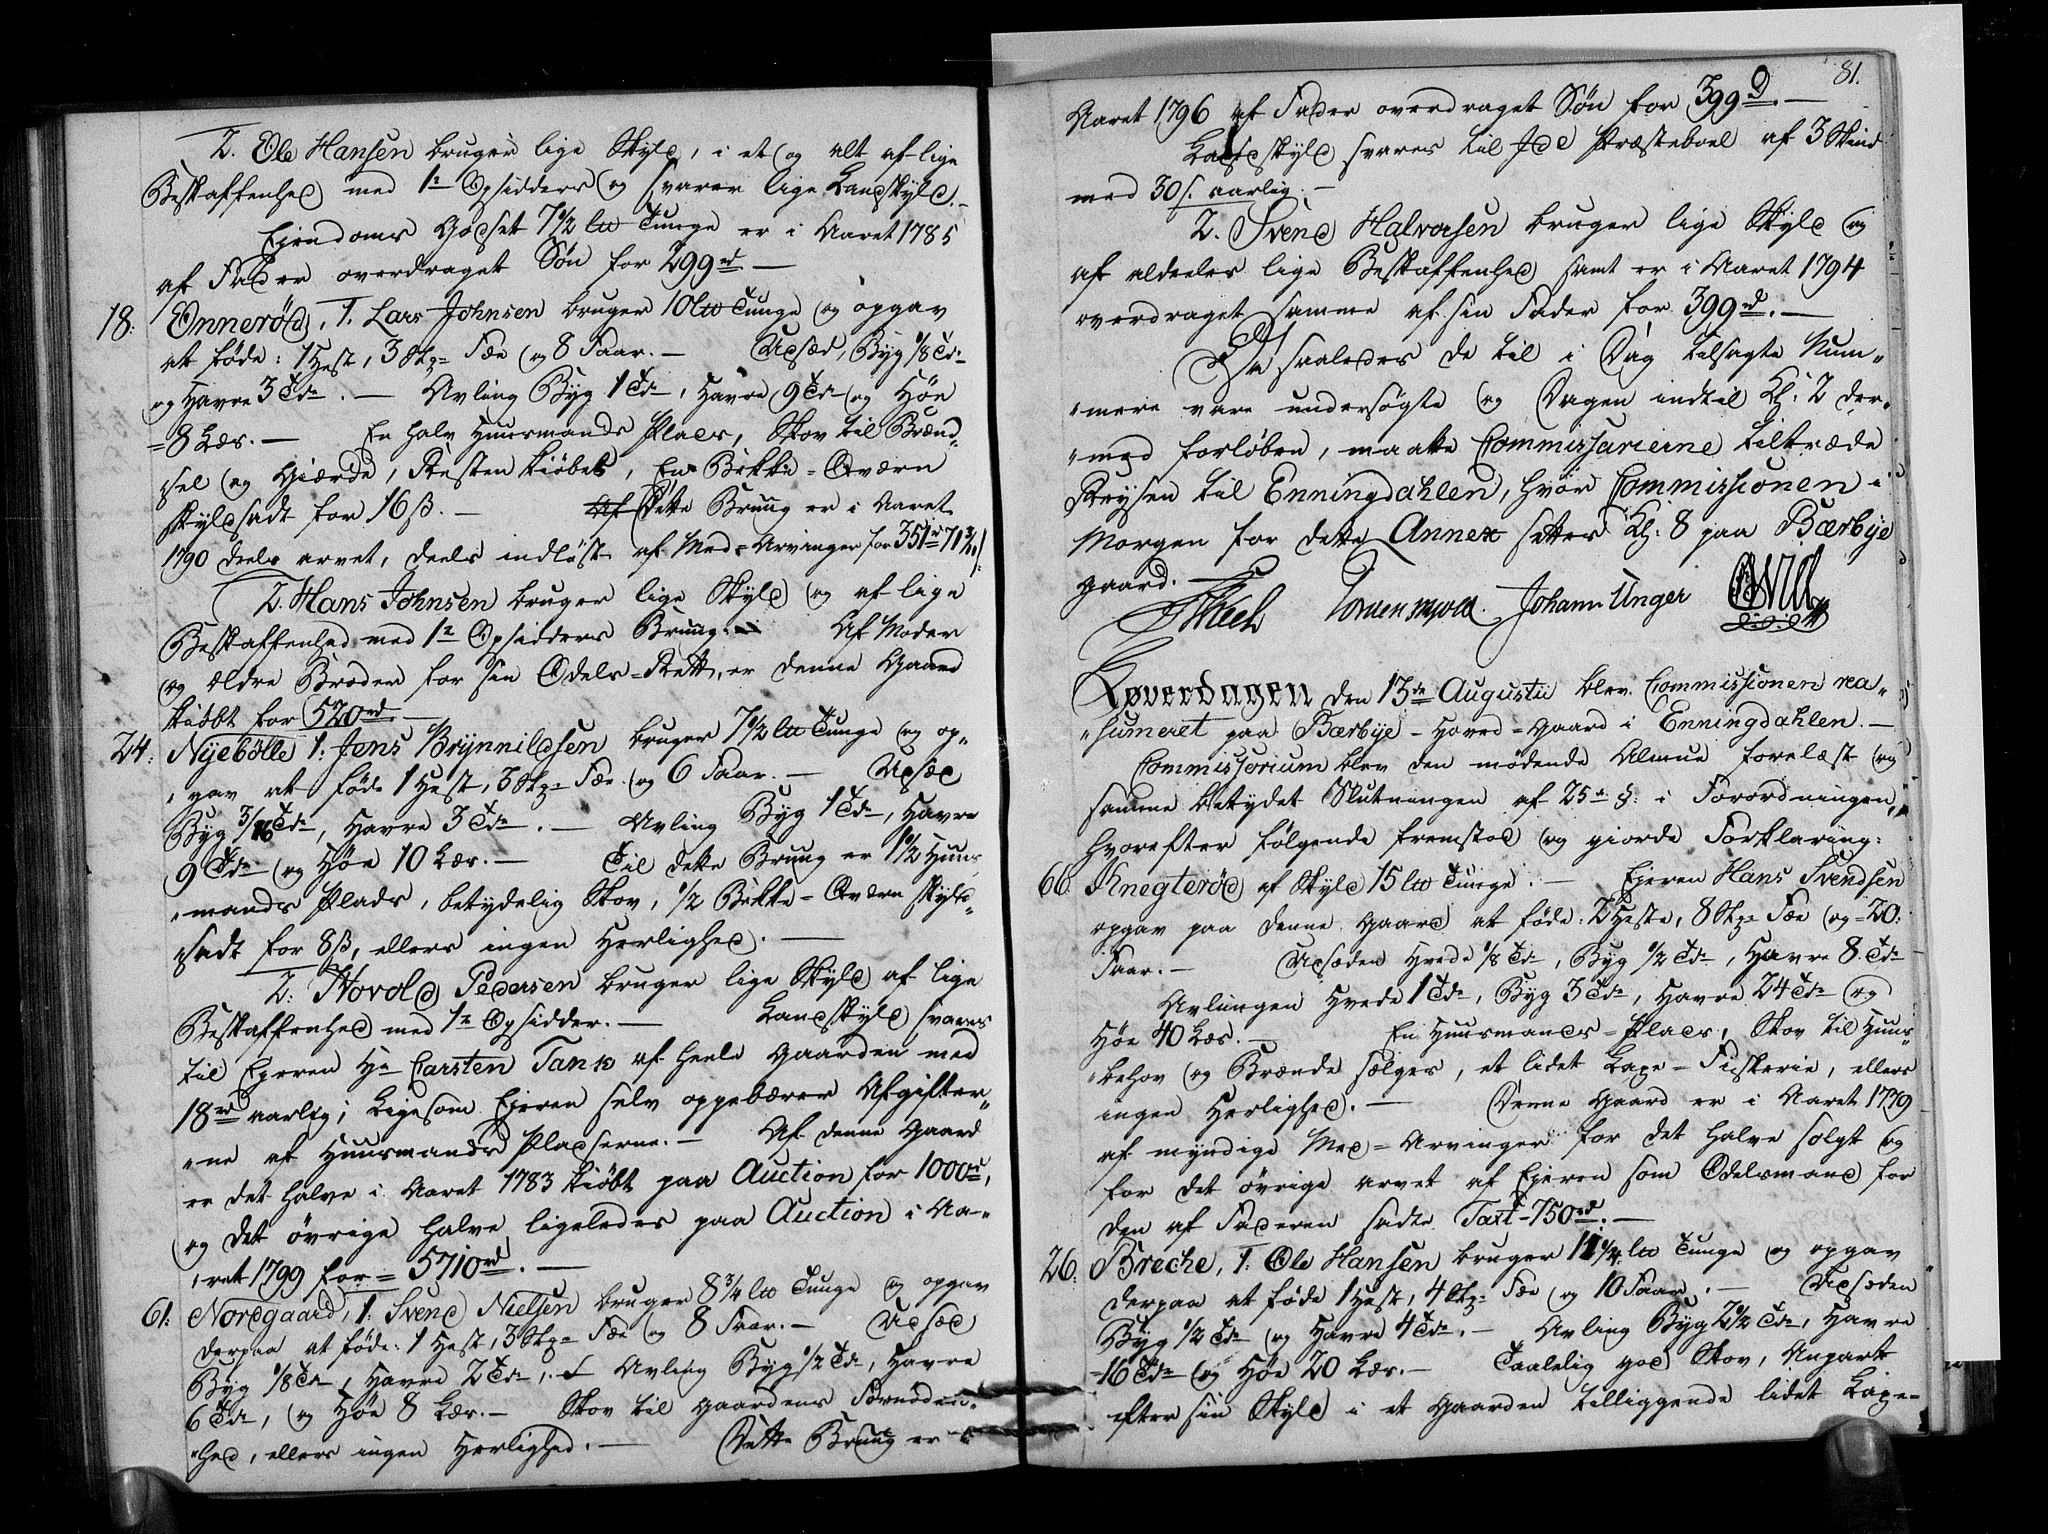 2. Ole Hansen bruger lige Skyld, i et og alt af lige
Beskaffenhed med 1ª Opsidders og svarer lige Landskyld.-
Ejendoms Godset 7½ lb Tunge er i Aaret 1785
af Fader overdraget Søn for 299 rd. —
18: Onnerød, 1. Lars Johnsen bruger 10 lb Tunge og opgav
at føde: 1 Hest, 3 Stkr Fæ og 8 Faar. — Udsæd, Byg 1/8 Tde
og Havre 3 Tdr. — Avling Byg 1 Tde, Havre 9 Tdr og Høe
= 8 Læs. — En halv Huusmands Plads, Skov til Brænd-
sel og Gjærde, Resten kiøbes, En Bekke-Qværn
skyldsadt for 16 ß. — Af Dette Bruug er i Aaret
1790 deels arvet, deels indløst af Med-Arvinger for 351 rd 71 3/11 s.
2. Hans Johnsen bruger lige Skyld og af lige
Beskaffenhed med 1ª Opsidders Bruug. — Af Moder
og ældre Brøder for sin Odels-Rett, er denne Gaard
kiøbt for 520 rd. —
24: Nyebølle 1. Jens Brynnildsen bruger 7½ lb Tunge og op-
„gav at føde 1 Hest, 3 Stkr Fæ og 6 Faar. — Udsæd
Byg 3/16 Tde, Havre 3 Tdr. — Avling Byg 1 Tde, Havre
9 Tdr og Høe 10 Læs. — Til dette Bruug er 1½ Huus-
„mands Plads, betydelig Skov, 1/2 Bekke-Qværn skyld-
„sadt for 8 ß, ellers ingen Herlighed. —
2: Hovold Pedersen bruger lige Skyld af lige
Beskaffenhed med 1ª Opsidder. — Landskyld svares
til Ejeren Hr Carsten Tank af heele Gaarden med
18 rd aarlig; Ligesom Ejeren selv oppebærer Afgifter-
„ne af Huusmands Pladserne. — Af denne Gaard
er det halve i Aaret 1783 kiøbt paa Auction for 1000 rd,
og det øvrige halve ligeledes paa Auction i Aa-
„ret 1799 for = 5710 rd. —
61: Nordgaard, 1. Svend Nielsen bruger 8¾ lb Tunge og opgav
derpaa at føde: 1 Hest, 3 Stkr Fæ og 8 Faar. — Udsæd
Byg 1/8 Tde, Havre 2 Tdr, — Avling Byg ½ Tde, Havre
6 Tdr, og Høe 8 Læs. — Skov til Gaardens Fornøden-
„hed, ellers ingen Herlighed. — Dette Bruug er i
81.
Aaret 1796 af Fader overdraget Søn for 399 rd. —
Landskyld svares til Idd Præsteboel af 3 Skind
med 30 s. aarlig. —
2. Svend Halvorsen bruger lige Skyld og
af aldeeles lige Beskaffenhed samt er i Aaret 1794
overdraget samme af sin Fader for 399 rd. —
Da saaledes de til i Dag tilsagte Num-
„mere vare undersøgte og Dagen indtil Kl: 2 der-
„med forløben, maatte Commissarierne tiltræde
Reysen til Enningdahlen, hvor Commissionen i
Morgen for dette Annex settes Kl: 8 paa Bærbye
Gaard. —
Johann Unger
Løverdagen den 13de Augustii blev Commissionen rea-
„sumeret paa Bærbye-Hoved-Gaard i Enningdahlen. —
Commissorium blev den mødende Almue forelæst og
samme betydet Slutningen af 25de §: i Forordningen,
hvorefter følgende fremstod og giorde Forklaring:
66. Knegterød af Skyld 15 lb Tunge. — Ejeren Hans Svendsen
opgav paa denne Gaard at føde: 2 Heste, 8 Stkr Fæ og 20.
Faar. — Udsæden Hvede 1/8 Tde, Byg 1/2 Tde, Havre 8 Tdr
Avlingen Hvede 1 Tde, Byg 3 Tdr, Havre 24 Tdr og
Høe 40 Læs. — En Huusmands-Plads, Skov til Huus-
„behov og Brænde sælges, et lidet Laxe-Fiskerie, ellers
ingen Herlighed. — Denne Gaard er i Aaret 1779
af myndige Med-Arvinger for det halve solgt og
for det øvrige arvet af Ejeren som Odelsmand for
den af Faderen sadte Taxt - 750 rd. —
26: Breche, 1: Ole Hansen bruger 11¼ lb Tunge og opgav
derpaa at føde 1 Hest, 4 Stkr Fæ og 10 Faar. — Udsæden
Byg 1/2 Tde og Havre 4 Tdr. — Avling Byg 2½ Tdr, Havre
-16 Tdr og Høe 20 Læs. — Taalelig god Skov, Anpart
efter sin Skyld i et Gaarden tilliggende lidet Laxe-